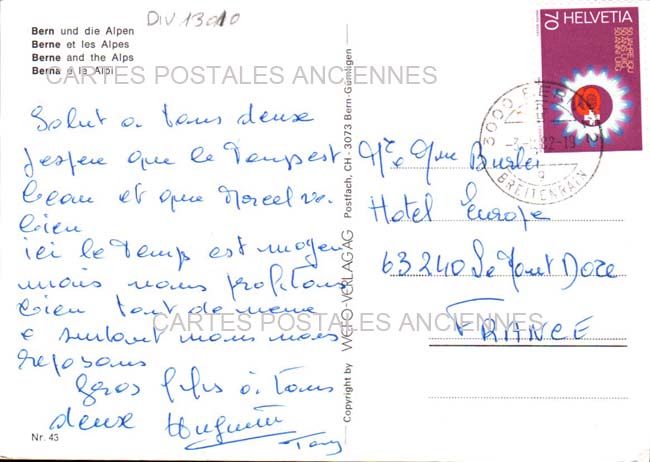 DIV 13010
Bern und die Alpen
Berne et les Alpes
Berne and the Alps
Berna e le Alpi
CARTES POSTALES ANCIENNES
Salut a tous deux
j'espere que le temps est
beau et que Marcel va
bien
ici le temps est moyen
mais nous profitons
bien tout de meme
e surtout nous nous
reposons
Gros bises à tous
deux Huguette
Nr. 43
Copyright by WEFO-VERLAG AG Postfach, CH - 3073 Bern-Gümligen
70 HELVETIA
3000 BERN 22
BREITENRAIN
Hotel Europe
63240 Le Mont Dore
CARTES POSTALES ANCIENNES
FRANCE